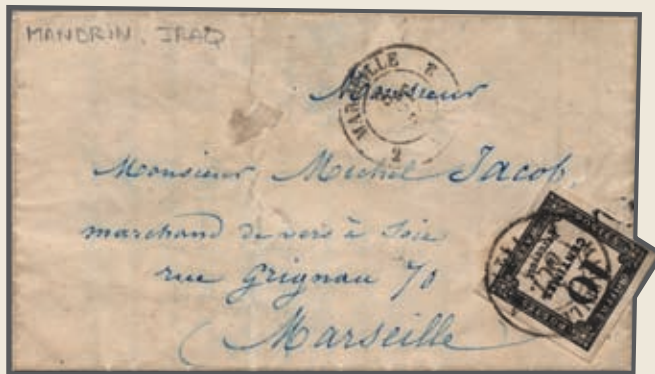 MANDRIN. IRAQ
MARSEILLE
2
Monsieur
Monsieur Michel Jacob,
marchand de vers à Soie
rue Grignan 70
(Marseille)
10
CENTIMES